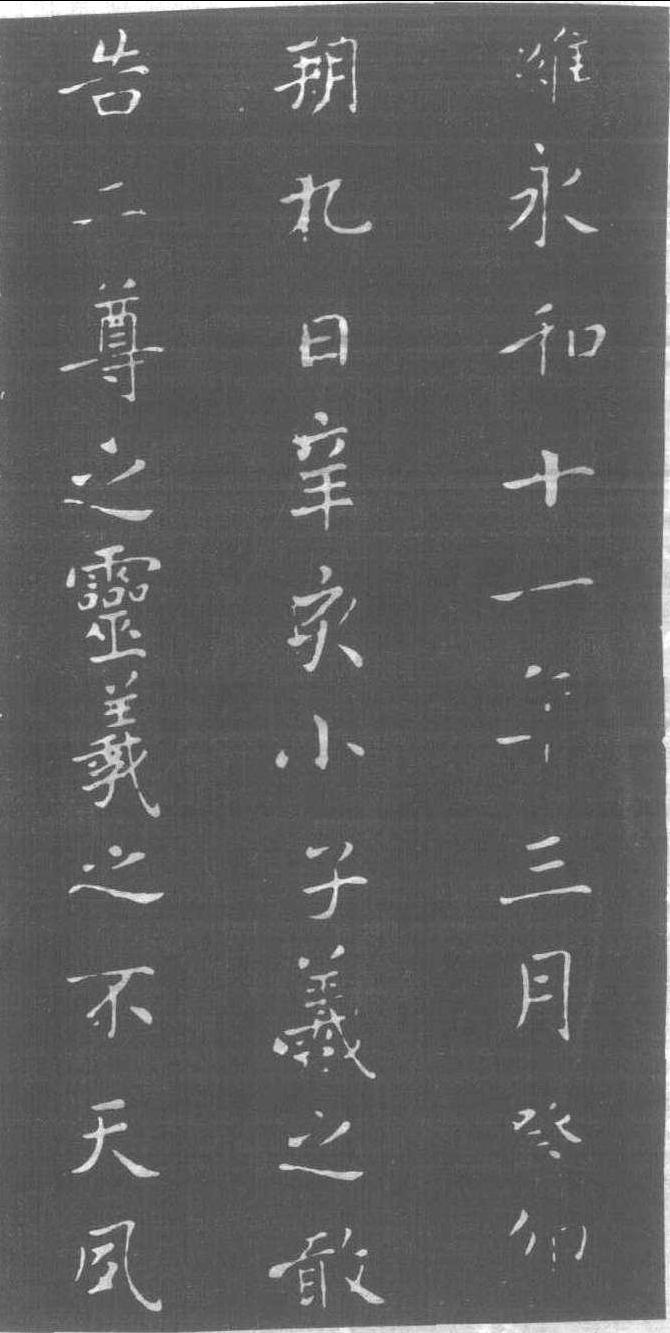 維永和十一年三月癸卯
朔九日辛亥小子羲之敢
告二尊之靈羲之不天夙